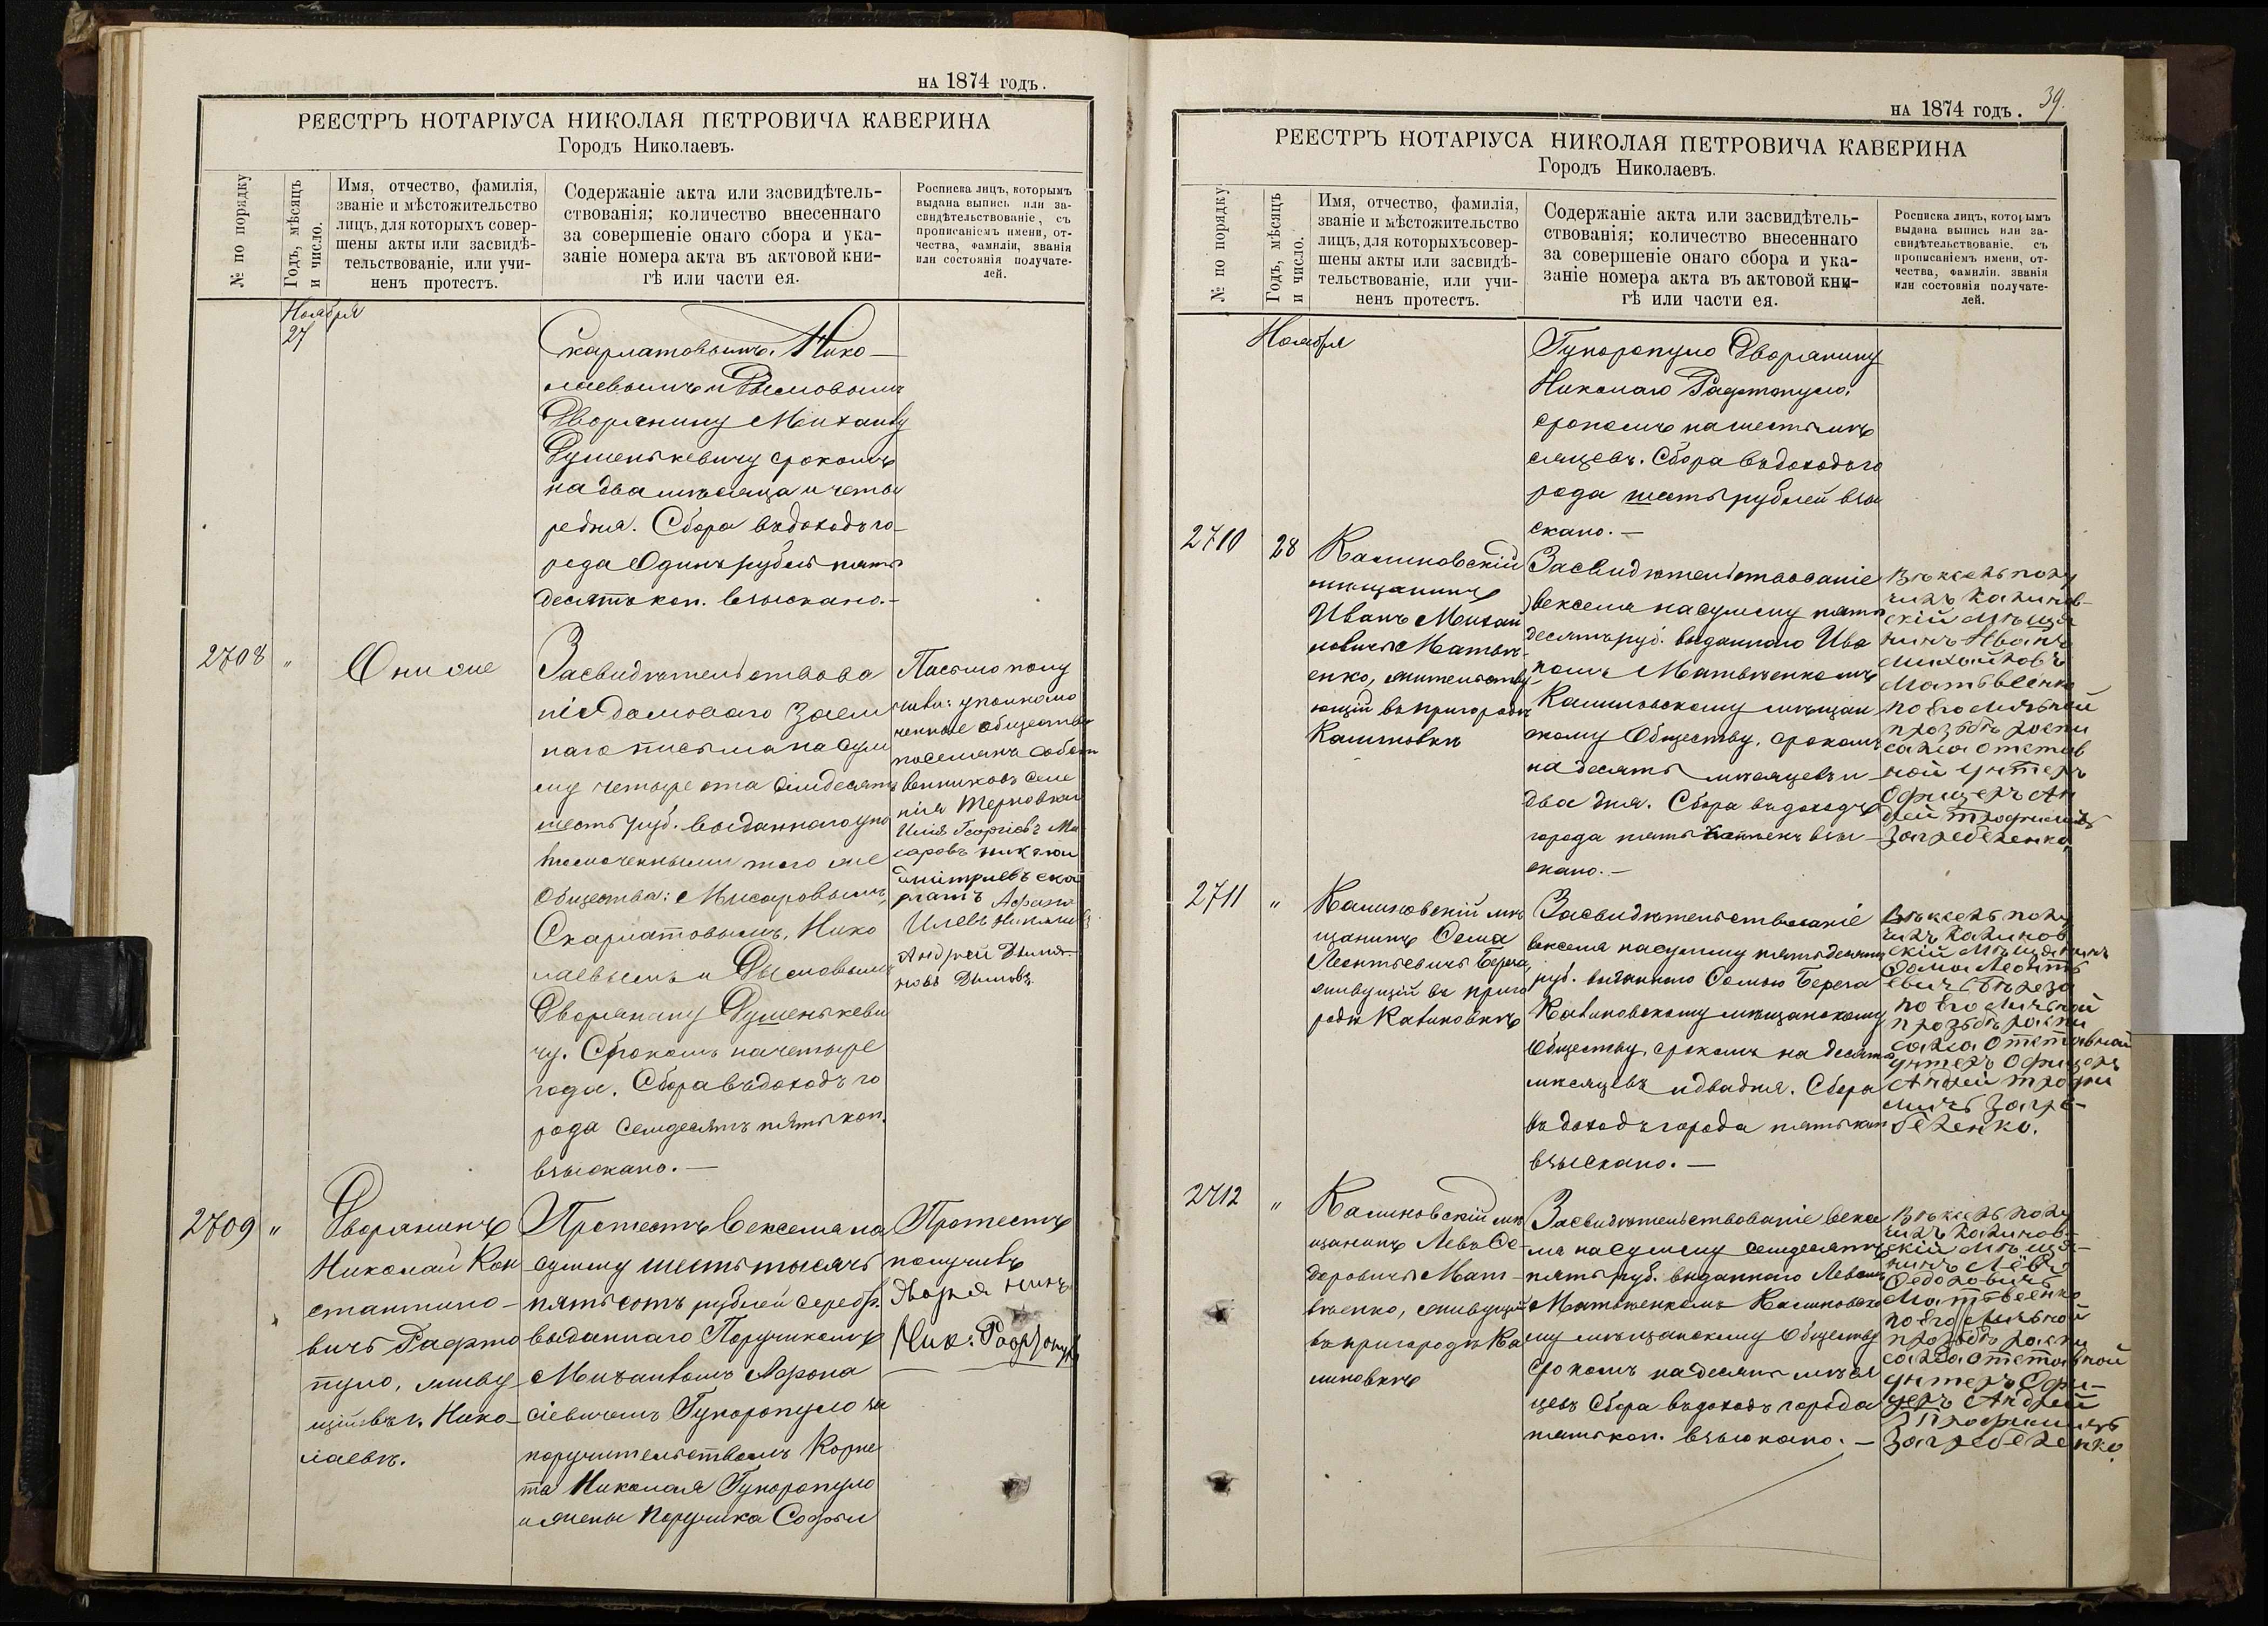 на 1874 годъ.
РЕЕСТРЪ НОТАРІУСА НИКОЛАЯ ПЕТРОВИЧА КАВЕРИНА
Городъ Николаевъ.
№ по порядку
Годъ, мѣсяцъ
и число.
Имя, отчество, фамилія,
званіе и мѣстожительство
лицъ, для которыхъ совер-
шены акты или засвидѣ-
тельствованіе, или учи-
ненъ протестъ.
Содержаніе акта или засвидѣтель-
ствованія; количество внесеннаго
за совершеніе онаго сбора и ука-
заніе номера акта въ актовой кни-
гѣ или части ея.
Росписка лицъ, которымъ
выдана выпись или за-
свидѣтельствованіе, съ
прописаніемъ имени, от-
чества, фамиліи, званія
или состоянія получате-
лей.
Ноября
27
Скарлатовымъ, Нико-
лаевымъ и Дымовымъ
Дворянину Михаилу
Душенькевичу срокомъ
на два мѣсяца и четы
ре дня. Сбора въ доходъ го-
рода Одинъ рубль пять
десятъ коп. взыскано.-
2708
"
Они же
Засвидѣтельствова
ніе домоваго заем
наго письма на сум
му четыреста семдесятъ
шесть руб. выданнаго упо
лномоченными того же
Общества: Мисаровымъ,
Скарлатовымъ, Нико
лаевымъ и Дымовымъ
Дворянину Душенькеви
чу. Срокомъ на четыре
года. Сбора въ доходъ го
рода семдесятъ пять коп.
взыскано.—
Письмо полу
чили: уполномо
ченные общества
поселянъ собст
венниковъ селе
нія Терновки
Илія Георгіевъ Ми
саровъ
Дмитріевъ Ска
рлатъ
Николаевъ
Андрей
Дымовъ
2709
"
Дворянинъ
Николай Кон
стантино-
вичъ Рафто
пуло, живу
щій въ г. Нико-
лаевѣ.
Протестъ векселя на
сумму шесть тысячъ
пятьсотъ рублей серебр.
выданнаго Поручикомъ
Михаиломъ
Гунаропуло за
поручительствомъ Корне
та Николая Гунаропуло
и жены Поручика Софьи
Протестъ
получилъ
дворянинъ
Ник. Рафтопуло
39.
на 1874 годъ.
РЕЕСТРЪ НОТАРІУСА НИКОЛАЯ ПЕТРОВИЧА КАВЕРИНА
Городъ Николаевъ.
№ по порядку
Годъ, мѣсяцъ
и число.
Имя, отчество, фамилія,
званіе и мѣстожительство
лицъ, для которыхъ совер-
шены акты или засвидѣ-
тельствованіе, или учи-
ненъ протестъ.
Содержаніе акта или засвидѣтель-
ствованія; количество внесеннаго
за совершеніе онаго сбора и ука-
заніе номера акта въ актовой кни-
гѣ или части ея.
Росписка лицъ, которымъ
выдана выпись или за-
свидѣтельствованіе, съ
прописаніемъ имени, от-
чества, фамиліи, званія
или состоянія получате-
лей.
Ноября
Гунаропуло Дворянину
Николаю Рафтопуло,
срокомъ на шесть мѣ
сяцевъ. Сбора въ доходъ го
рода шесть рублей взы
скано.—
2710
28
Калиновскій
мѣщанинъ
Иванъ Михай
ловичъ Матвѣ-
енко, жительству
ющій въ пригородѣ
Калиновкѣ
Засвидѣтельствованіе
векселя на сумму пять
десятъ руб. выданнаго Ива
номъ Матвѣенкомъ
Калиновскому мѣщан
скому Обществу, срокомъ
на десять мѣсяцевъ и
два дня. Сбора въ доходъ
города пять копѣекъ взы-
скано.—
Вѣксель полу
чилъ Калинов-
скій мѣща
нинъ Иванъ
Михайловъ
Матвѣенко
по его личьной
прозьбѣ роспи
салса отстав
ной унтеръ
Офицеръ Ан
дрей Трофимовъ
Загребеленко
2711
"
Калиновскій мѣ
щанинъ Ѳома
Леонтьевичъ Береза,
живущій въ приго
родѣ Калиновкѣ
Засвидѣтельствованіе
векселя на сумму пятьдесятъ
руб. выданнаго Ѳомою Береза
Калиновскому мѣщанскому
Обществу, срокомъ на десять
мѣсяцевъ и два дня. Сбора
въ доходъ города пять коп
взыскано.—
Вѣксель полу
чилъ Калинов
скій мѣщанинъ
Ѳома Леонть
евичъ Береза
по его личьной
прозьбѣ распи
салса отставной
унтеръ офицеръ
Андрей Трофи
мичъ Загре-
беленко.
2712
"
Калиновскій мѣ
щанинъ Левъ Ѳе-
доровичъ Мат-
вѣенко, живущій
въ пригородѣ Ка
линовкѣ
Засвидѣтельствованіе вексе
ля на сумму семдесятъ
пять руб. выданнаго Львомъ
Матвѣенкомъ Калиновско
му мѣщанскому Обществу
срокомъ на десять мѣся
цевъ Сбора въ доходъ города
пять коп. взыскано.—
Вѣксель полу
чилъ Калинов-
скій мѣща-
нинъ Левъ
Ѳедоровичъ
Матвѣенко
по его личьной
прозьбѣ распи
салса отставной
унтеръ Офи-
церъ Андрей
Трофимичъ
Загребеленко